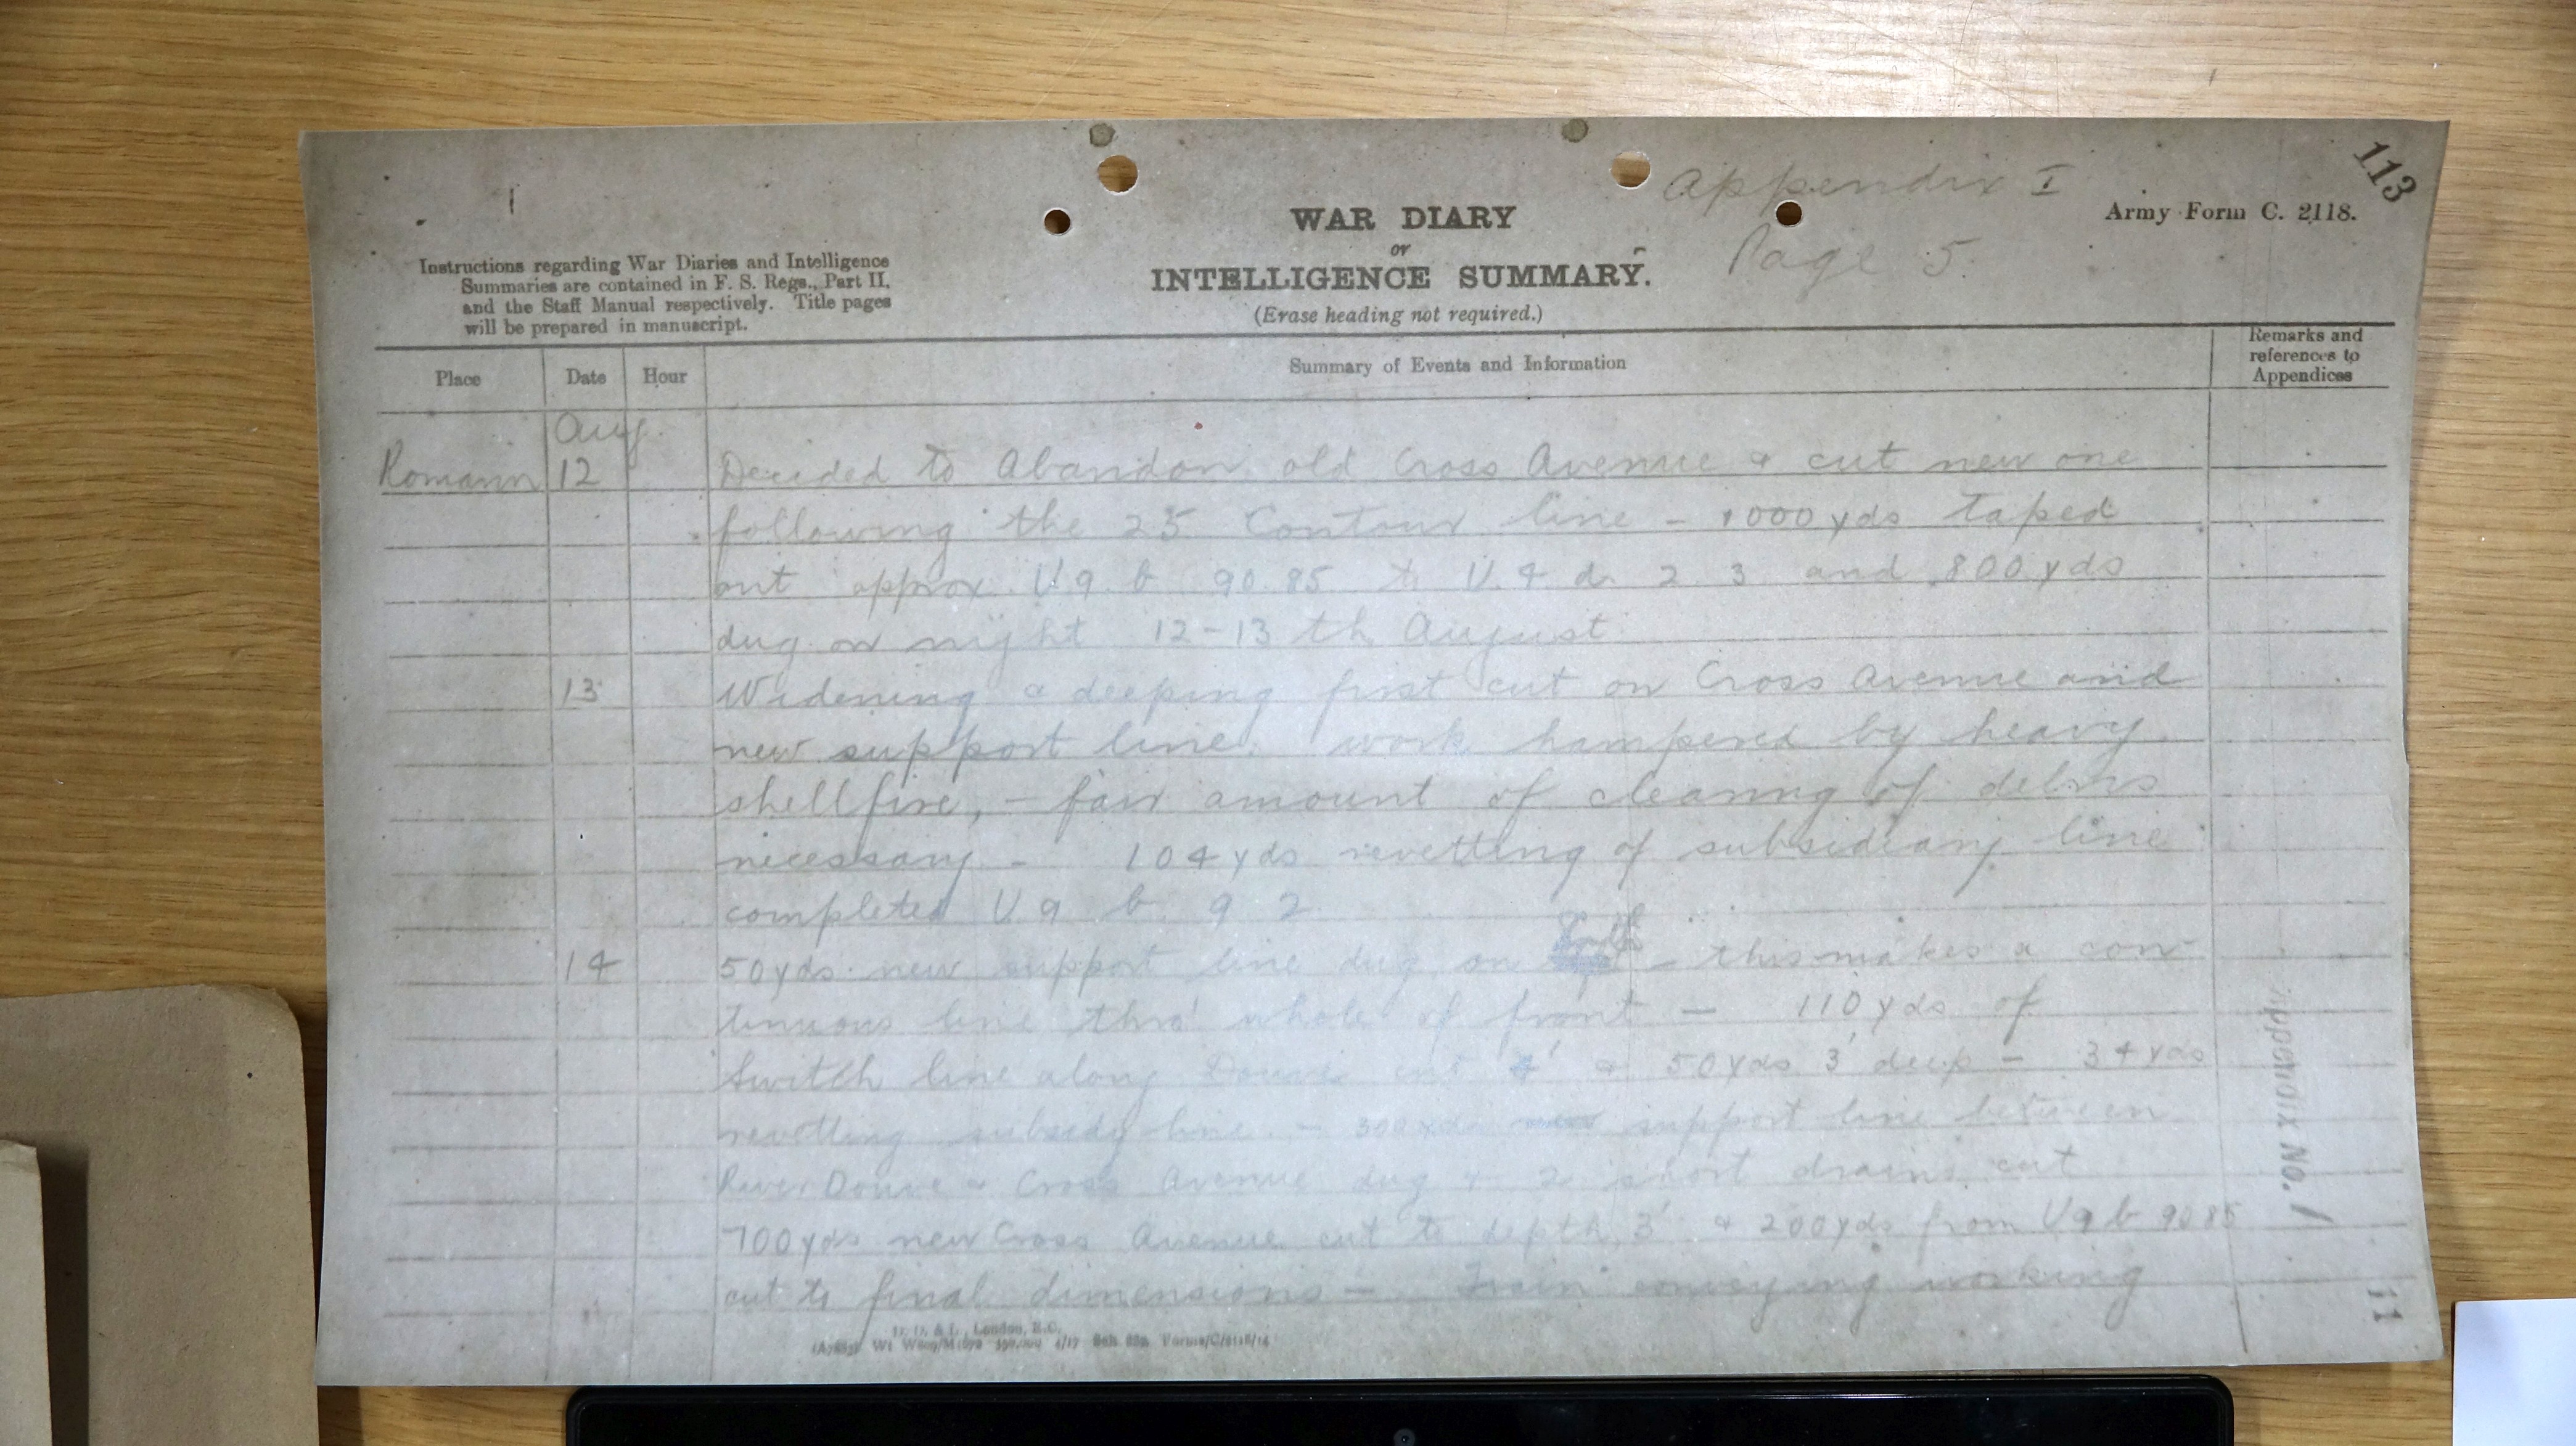 113
Appendix I
Army Form C. 2118.
Page 5.
WAR DIARY
or
INTELLIGENCE SUMMARY.
(Erase heading not required.)
Instructions regarding War Diaries and Intelligence
Summaries are contained in F. S. Regs., Part II,
and the Staff Manual respectively. Title pages
will be prepared in manuscript.
Place Date Hour Summary of Events and Information Remarks and references to Appendices
Aug.
Romarin 12 Decided to Abandon old Cross Avenue & cut new one
following the 25 Contour line - 1000 yds taped
out approx U 9 b 90.85 to U. 4 d. 2 3 and 800 yds
dug on night 12-13 th August.
13 Widening & deeping first cut on Cross Avenue and
new support line. work hampered by heavy
shellfire, - fair amount of cleaning of debris
necessary - 104 yds revetting of subsidiary line
completed U 9 b 9 2
14 50 yds new support line dug on - this makes a con
tinuous line thro' whole of front - 110 yds of
Switch line along Douve cut 4' & 50 yds 3' deep - 34 yds
revetting subsidy line. - 300 yds support line between
River Douve & Cross Avenue dug & 2 short drains cut
700 yds new Cross Avenue cut to depth 3' & 200 yds from U 9 b 90 85
cut to final dimensions - Train conveying working
Appendix No. 1
11
D. D. & L., London, E.C.
Forms/C/2118/14